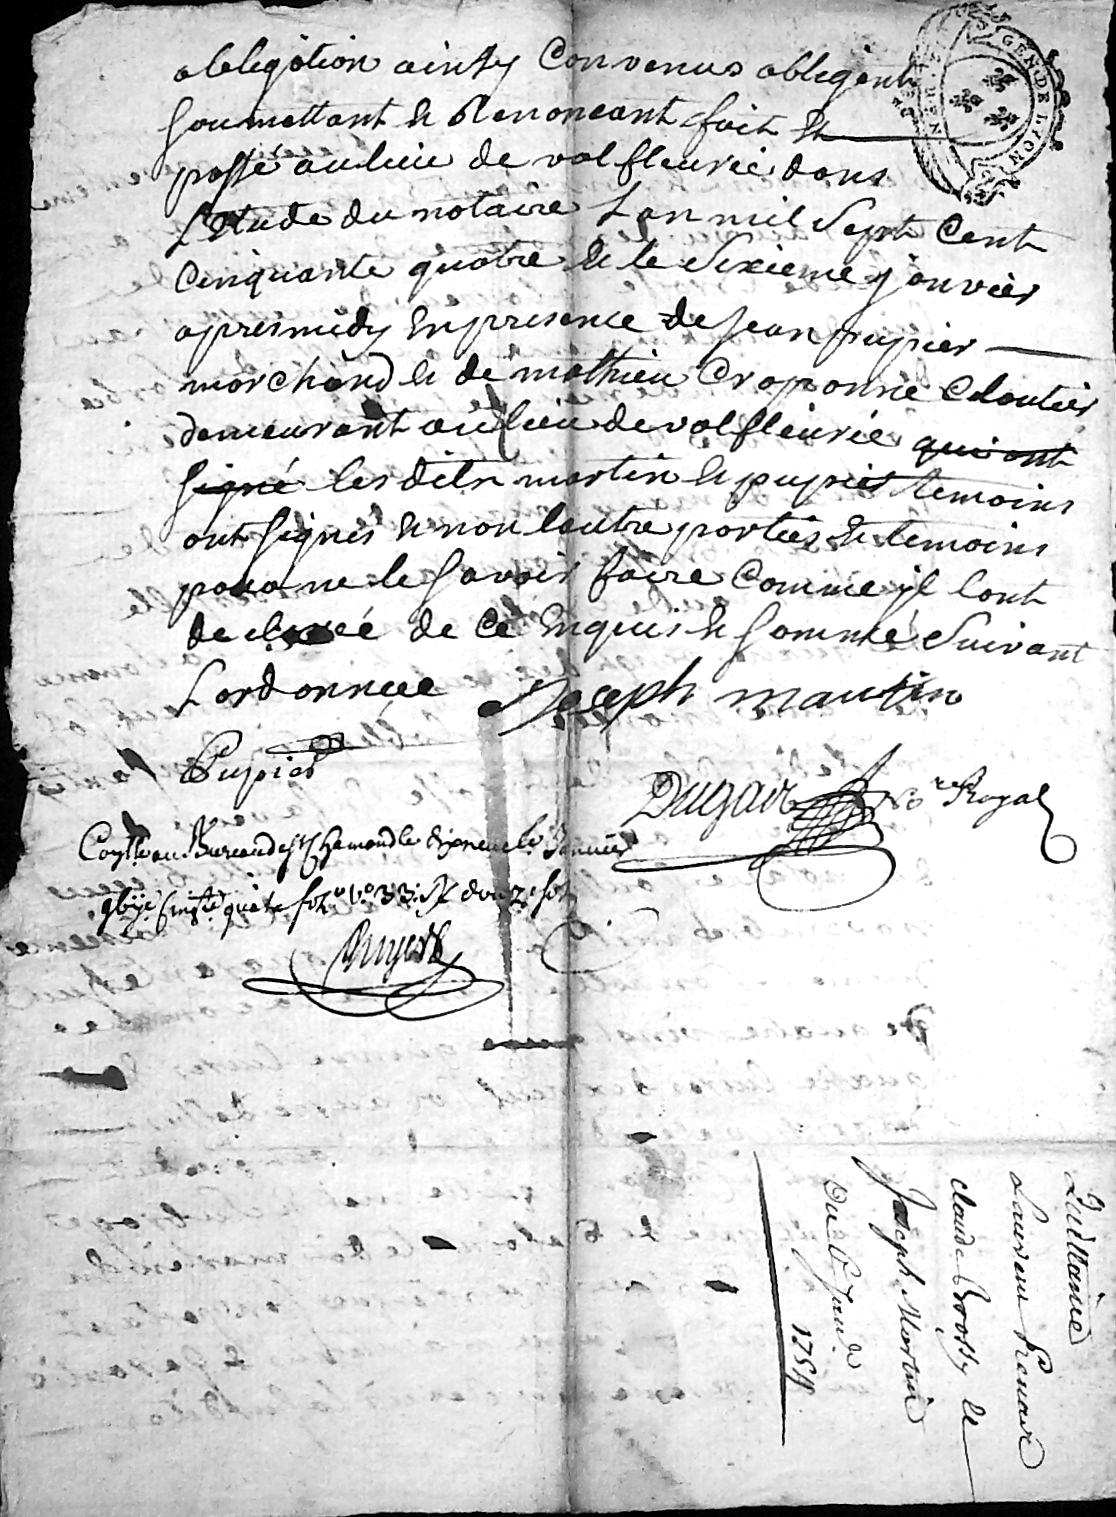 obligation ainsy convenus obligent
soumettant & Renonceant fait &
passé au lieu de valfleurie dans
L'Etude du notaire L an mil Sept Cent
Cinquante quatre & le Sixieme janvier
apresmidy En presence de jean pupier
marchand & de mathieu Croponne Cloutier
demeurant au lieu de valfleurie qui ont
signé lesdits martin & pupier temoins
ont signés & non lautre parties & temoins
pour ne le savoir faire Comme jl lont
de claré de Ce Enquis & sommé Suivant
Lordonnce
Joseph martin
Pupier
Dugair No.re Royal
au Bureau de St Chamond le Janvier
quatre fo v.o 33
GEN DE LYON
Quittance
Laurent
claude Brossy &
Joseph Martin
Du 6e Janv
1754